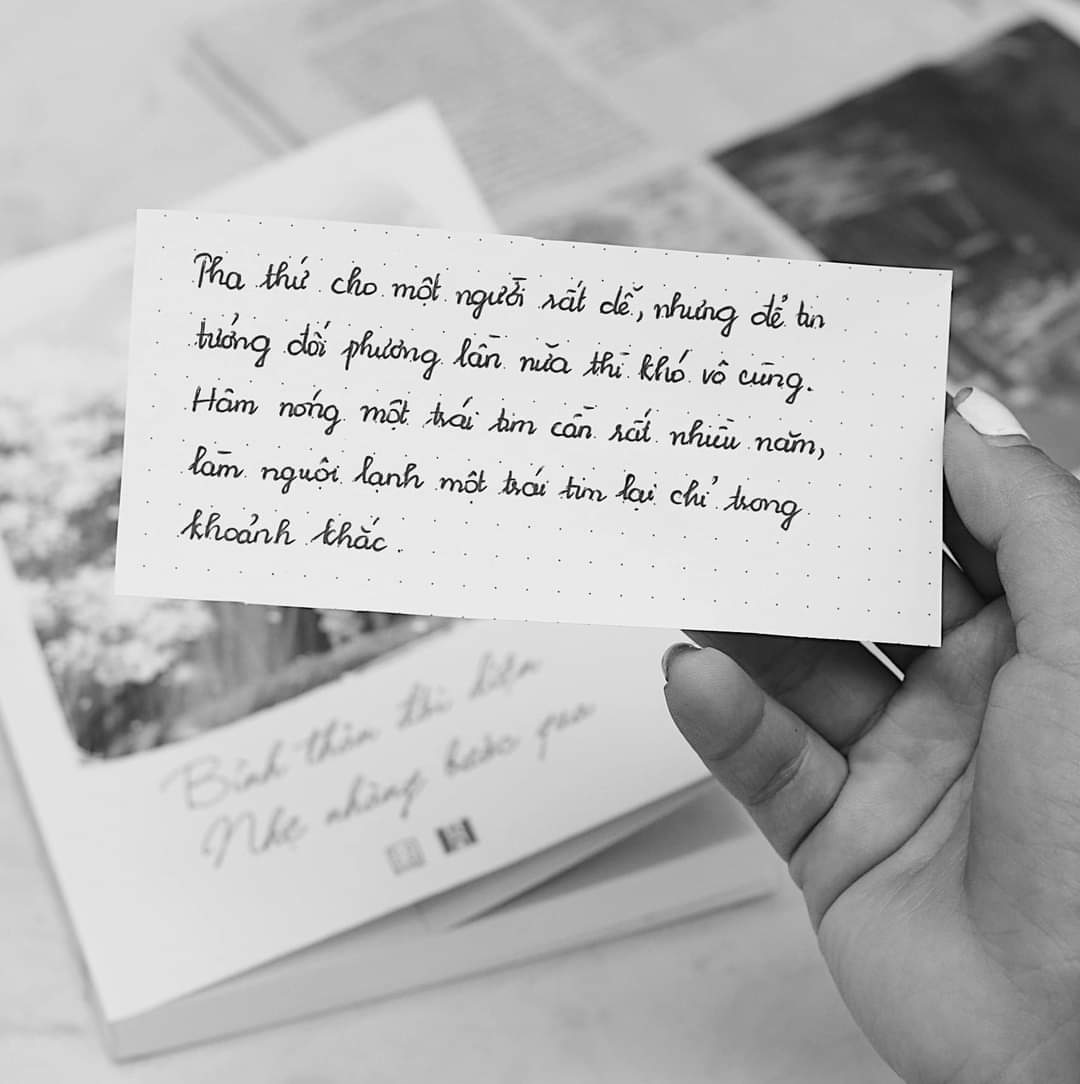 Tha thứ cho một người rất dễ, nhưng để tin
tưởng đối phương lần nữa thì khó vô cùng.
Hâm nóng một trái tim cần rất nhiều năm,
làm nguội lạnh một trái tim lại chỉ trong
khoảnh khắc.
Bình thản
Nhẹ nhàng bước qua